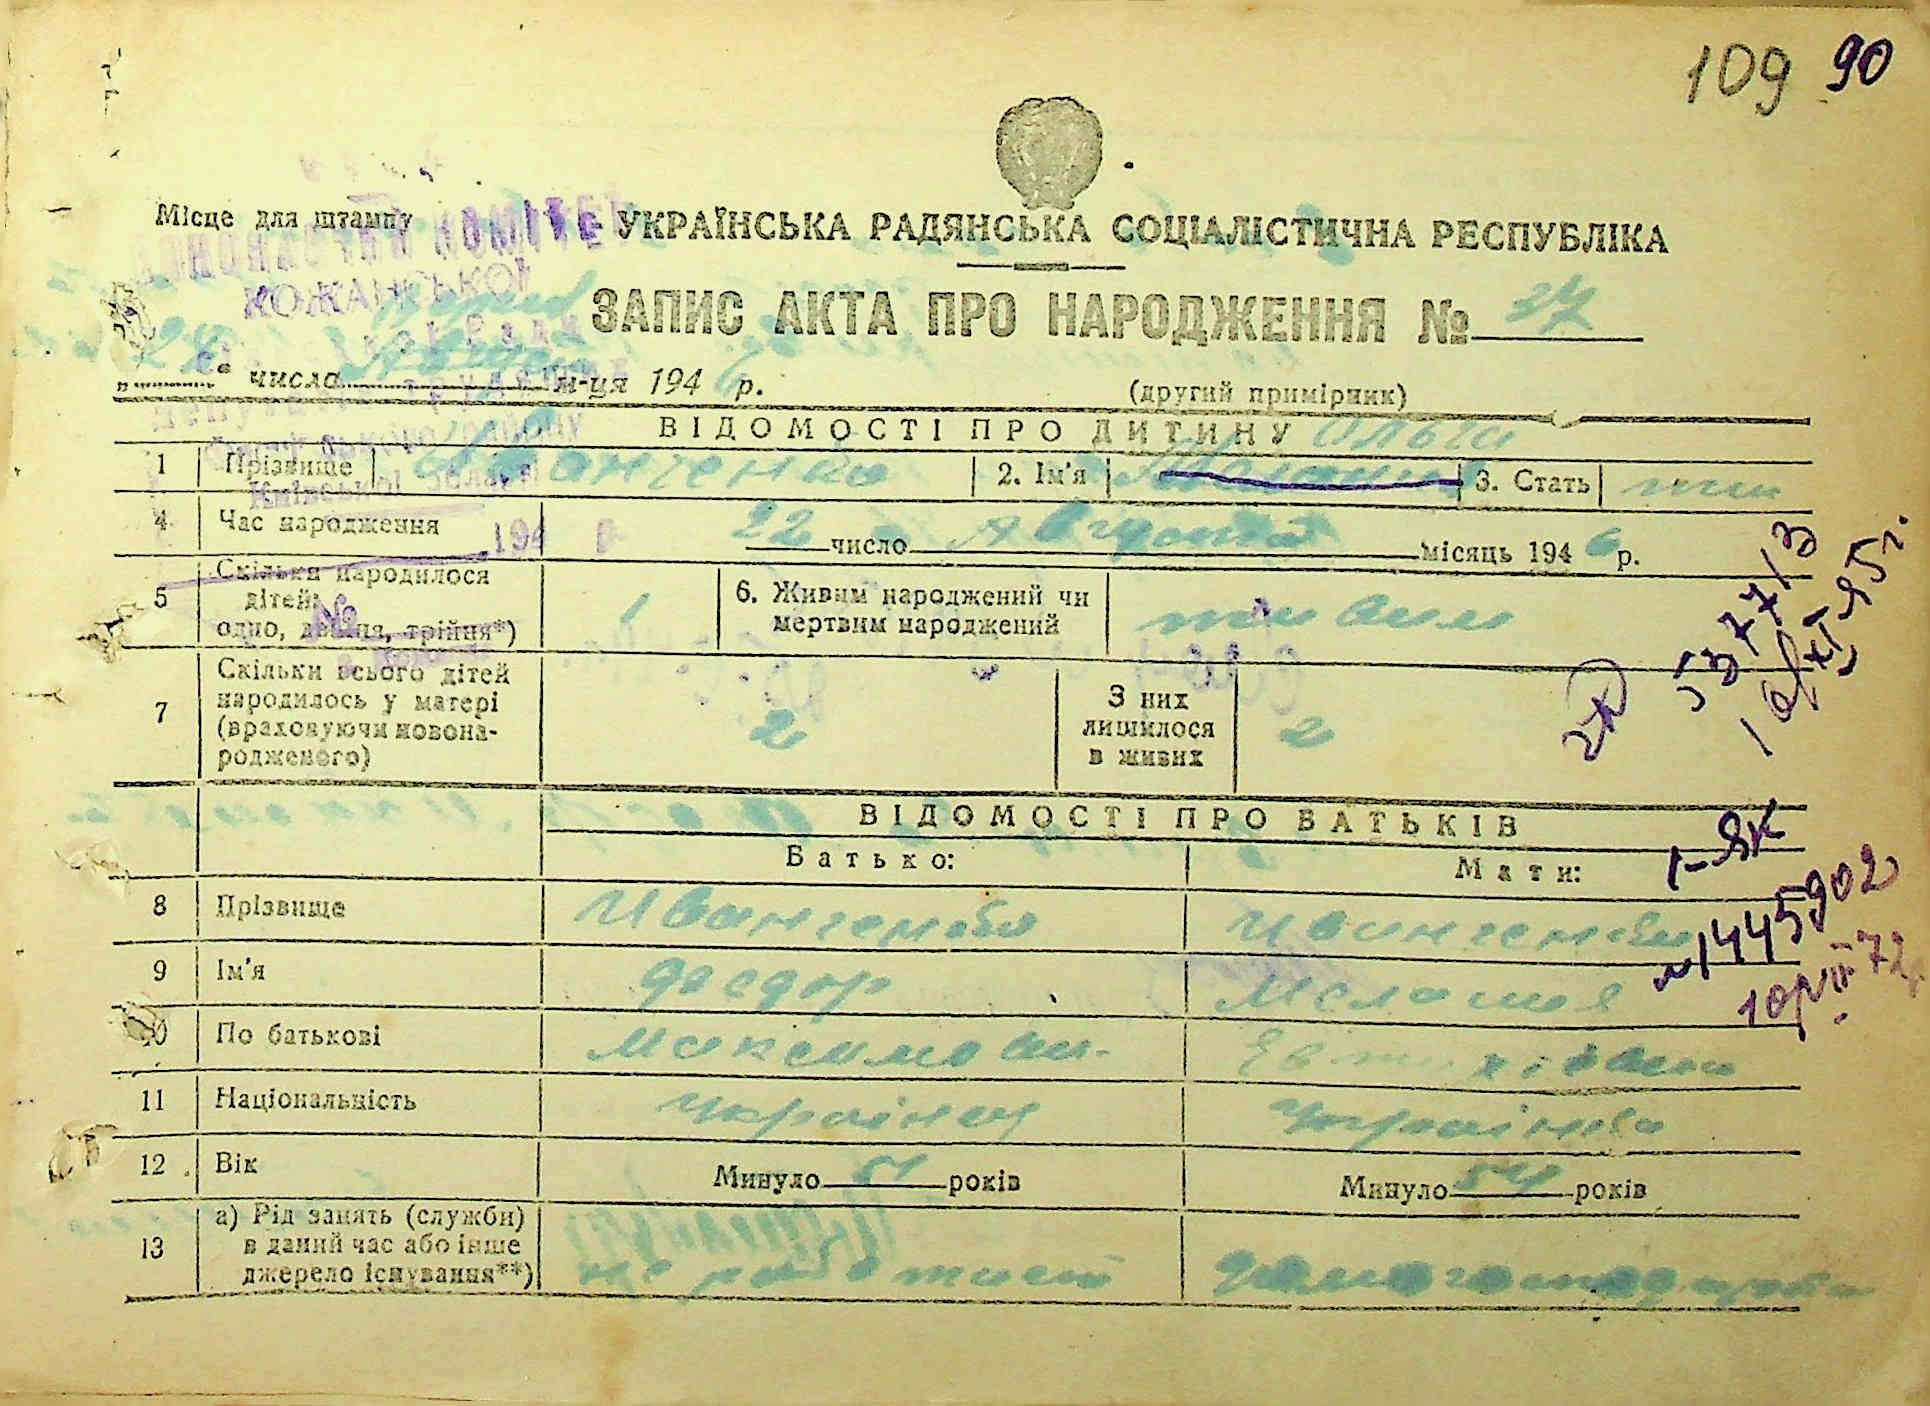 109 90
Місце для штампу
УКРАЇНСЬКА РАДЯНСЬКА СОЦІАЛІСТИЧНА РЕСПУБЛІКА
ВИКОНАВЧИЙ КОМІТЕТ
КОЖАНСЬКОЇ
ЗАПИС АКТА ПРО НАРОДЖЕННЯ № 37
числа м-ця 1946 р.
(другий примірник)
ВІДОМОСТІ ПРО ДИТИНУ Ольга
1 Прізвище Иванченко 2. Ім'я 3. Стать жін
Київської області
4 Час народження 22 число Августа місяць 1946 р.
5 Скільки народилося дітей: одно, двійня, трійня*) 1 6. Живим народжений чи мертвим народжений живим
5377/3
7 Скільки всього дітей народилось у матері (враховуючи новонародженого) 2 З них лишилося в живих 2
ВІДОМОСТІ ПРО БАТЬКІВ
Батько: Мати:
1-ЯК
8 Прізвище Иванченко Иванченко
№1445902
9 Ім'я Федор Мелашия
10 По батькові Максимови.
11 Національність українец українка
12 Вік Минуло 51 років Минуло років
13 а) Рід занять (служби) в даний час або інше джерело існування**) домогосподарка